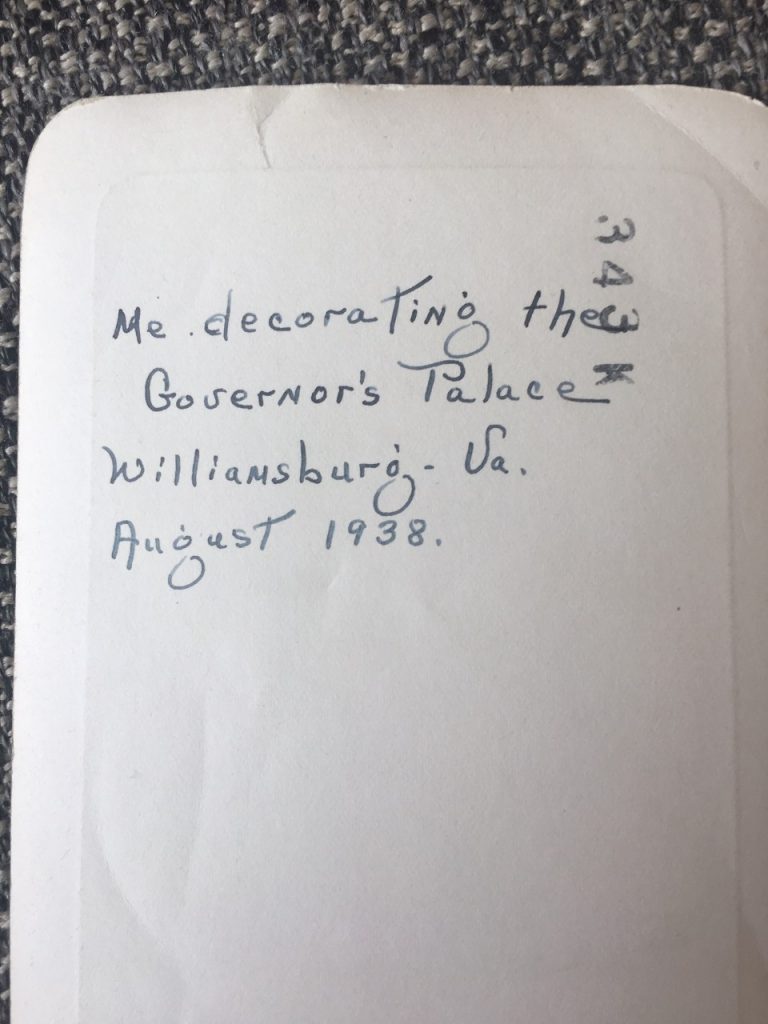 Me decorating the
Governor's Palace
Williamsburg - Va.
August 1938.
343 K